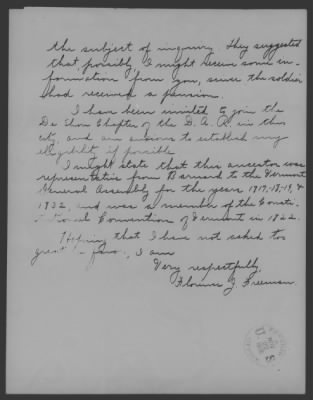 the subject of inquiry. They suggested
that, possibly I might receive some in-
formation from you, since the soldier
had received a pension.
I have been invited to join the
De Shon Chapter of the D. A. R. in this
city, and am anxious to establish my
eligibility if possible.
I might state that this ancestor was
representative from Barnard to the Vermont
General Assembly for the years 1817, -18, -19, &
1832, and was a member of the Consti-
tutional Convention of Vermont in 1822.
Hoping that I have not asked too
great a favor, I am
Very respectfully,
Florence J. Freeman.